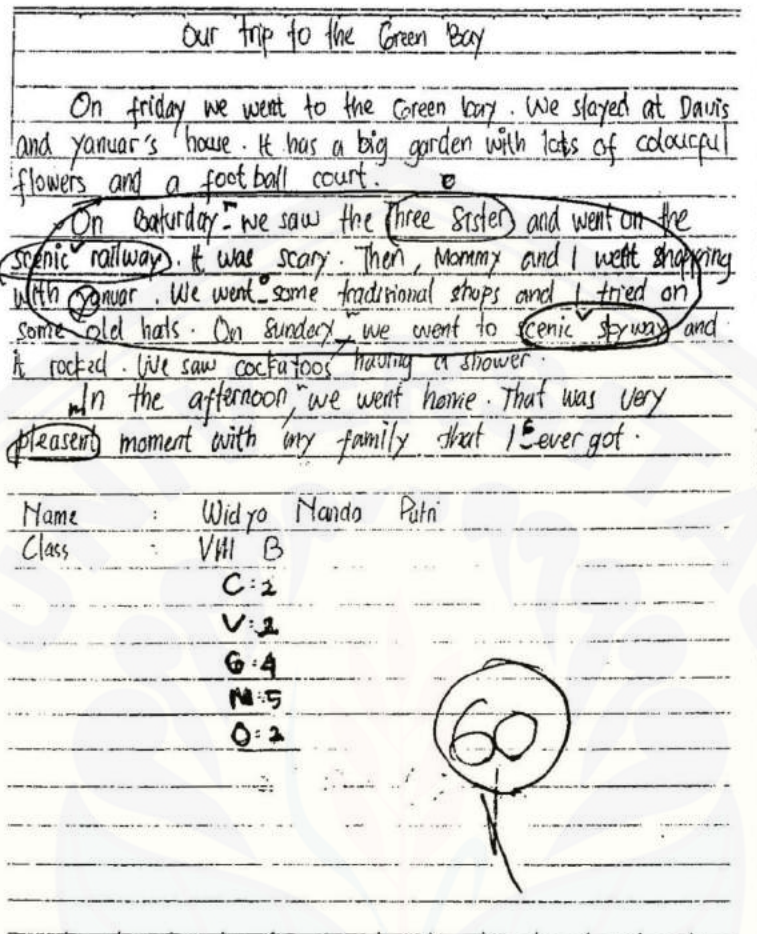 Our trip to the Green Bay
On friday we went to the Green bay. We stayed at Davis
and Yanuar's house. It has a big garden with lots of colourful
flowers and a foot ball court.
On Saturday we saw the Three Sister and went on the
scenic railway. It was scary. Then, Mommy and I went shopping
with yanuar. We went some traditional shops and I tried on
some old hats. On Sunday, we went to scenic skyway and
it rocked. We saw cockatoos having a shower.
In the afternoon, we went home. That was very
pleasent moment with my family that I ever got.
Name : Widyo Nando Putri
Class : VIII B
C : 2
V : 2
G : 4
M : 5
O : 2
60